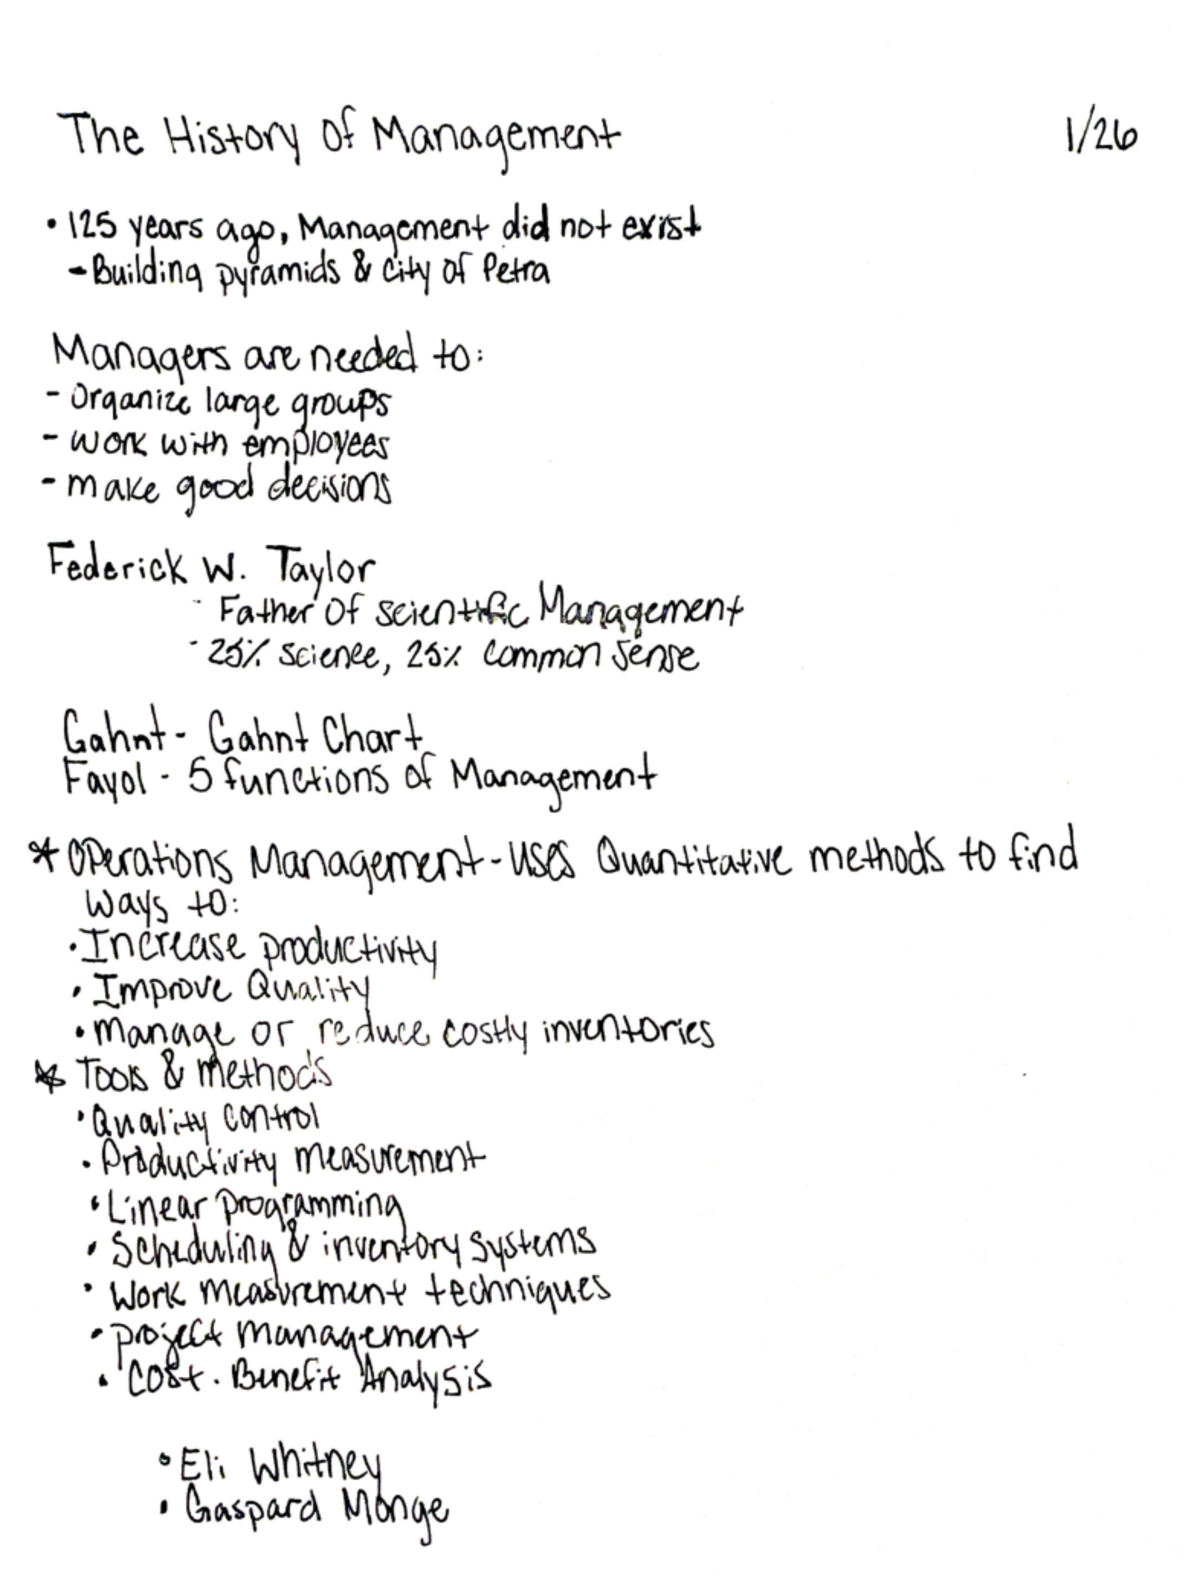 The History Of Management 1/26
• 125 years ago, Management did not exist
- Building pyramids & city of Petra
Managers are needed to:
- Organize large groups
- work with employees
- make good decisions
Federick W. Taylor
- Father Of scientific Management
- 25% science, 25% common sense
Gahnt - Gahnt Chart
Fayol - 5 functions of Management
* Operations Management - uses Quantitative methods to find
Ways to:
• Increase productivity
• Improve Quality
• Manage or reduce costly inventories
* Tools & methods
• Quality control
• Productivity measurement
• Linear programming
• Scheduling & inventory systems
• Work measurement techniques
• project management
• Cost. Benefit Analysis
• Eli Whitney
• Gaspard Monge